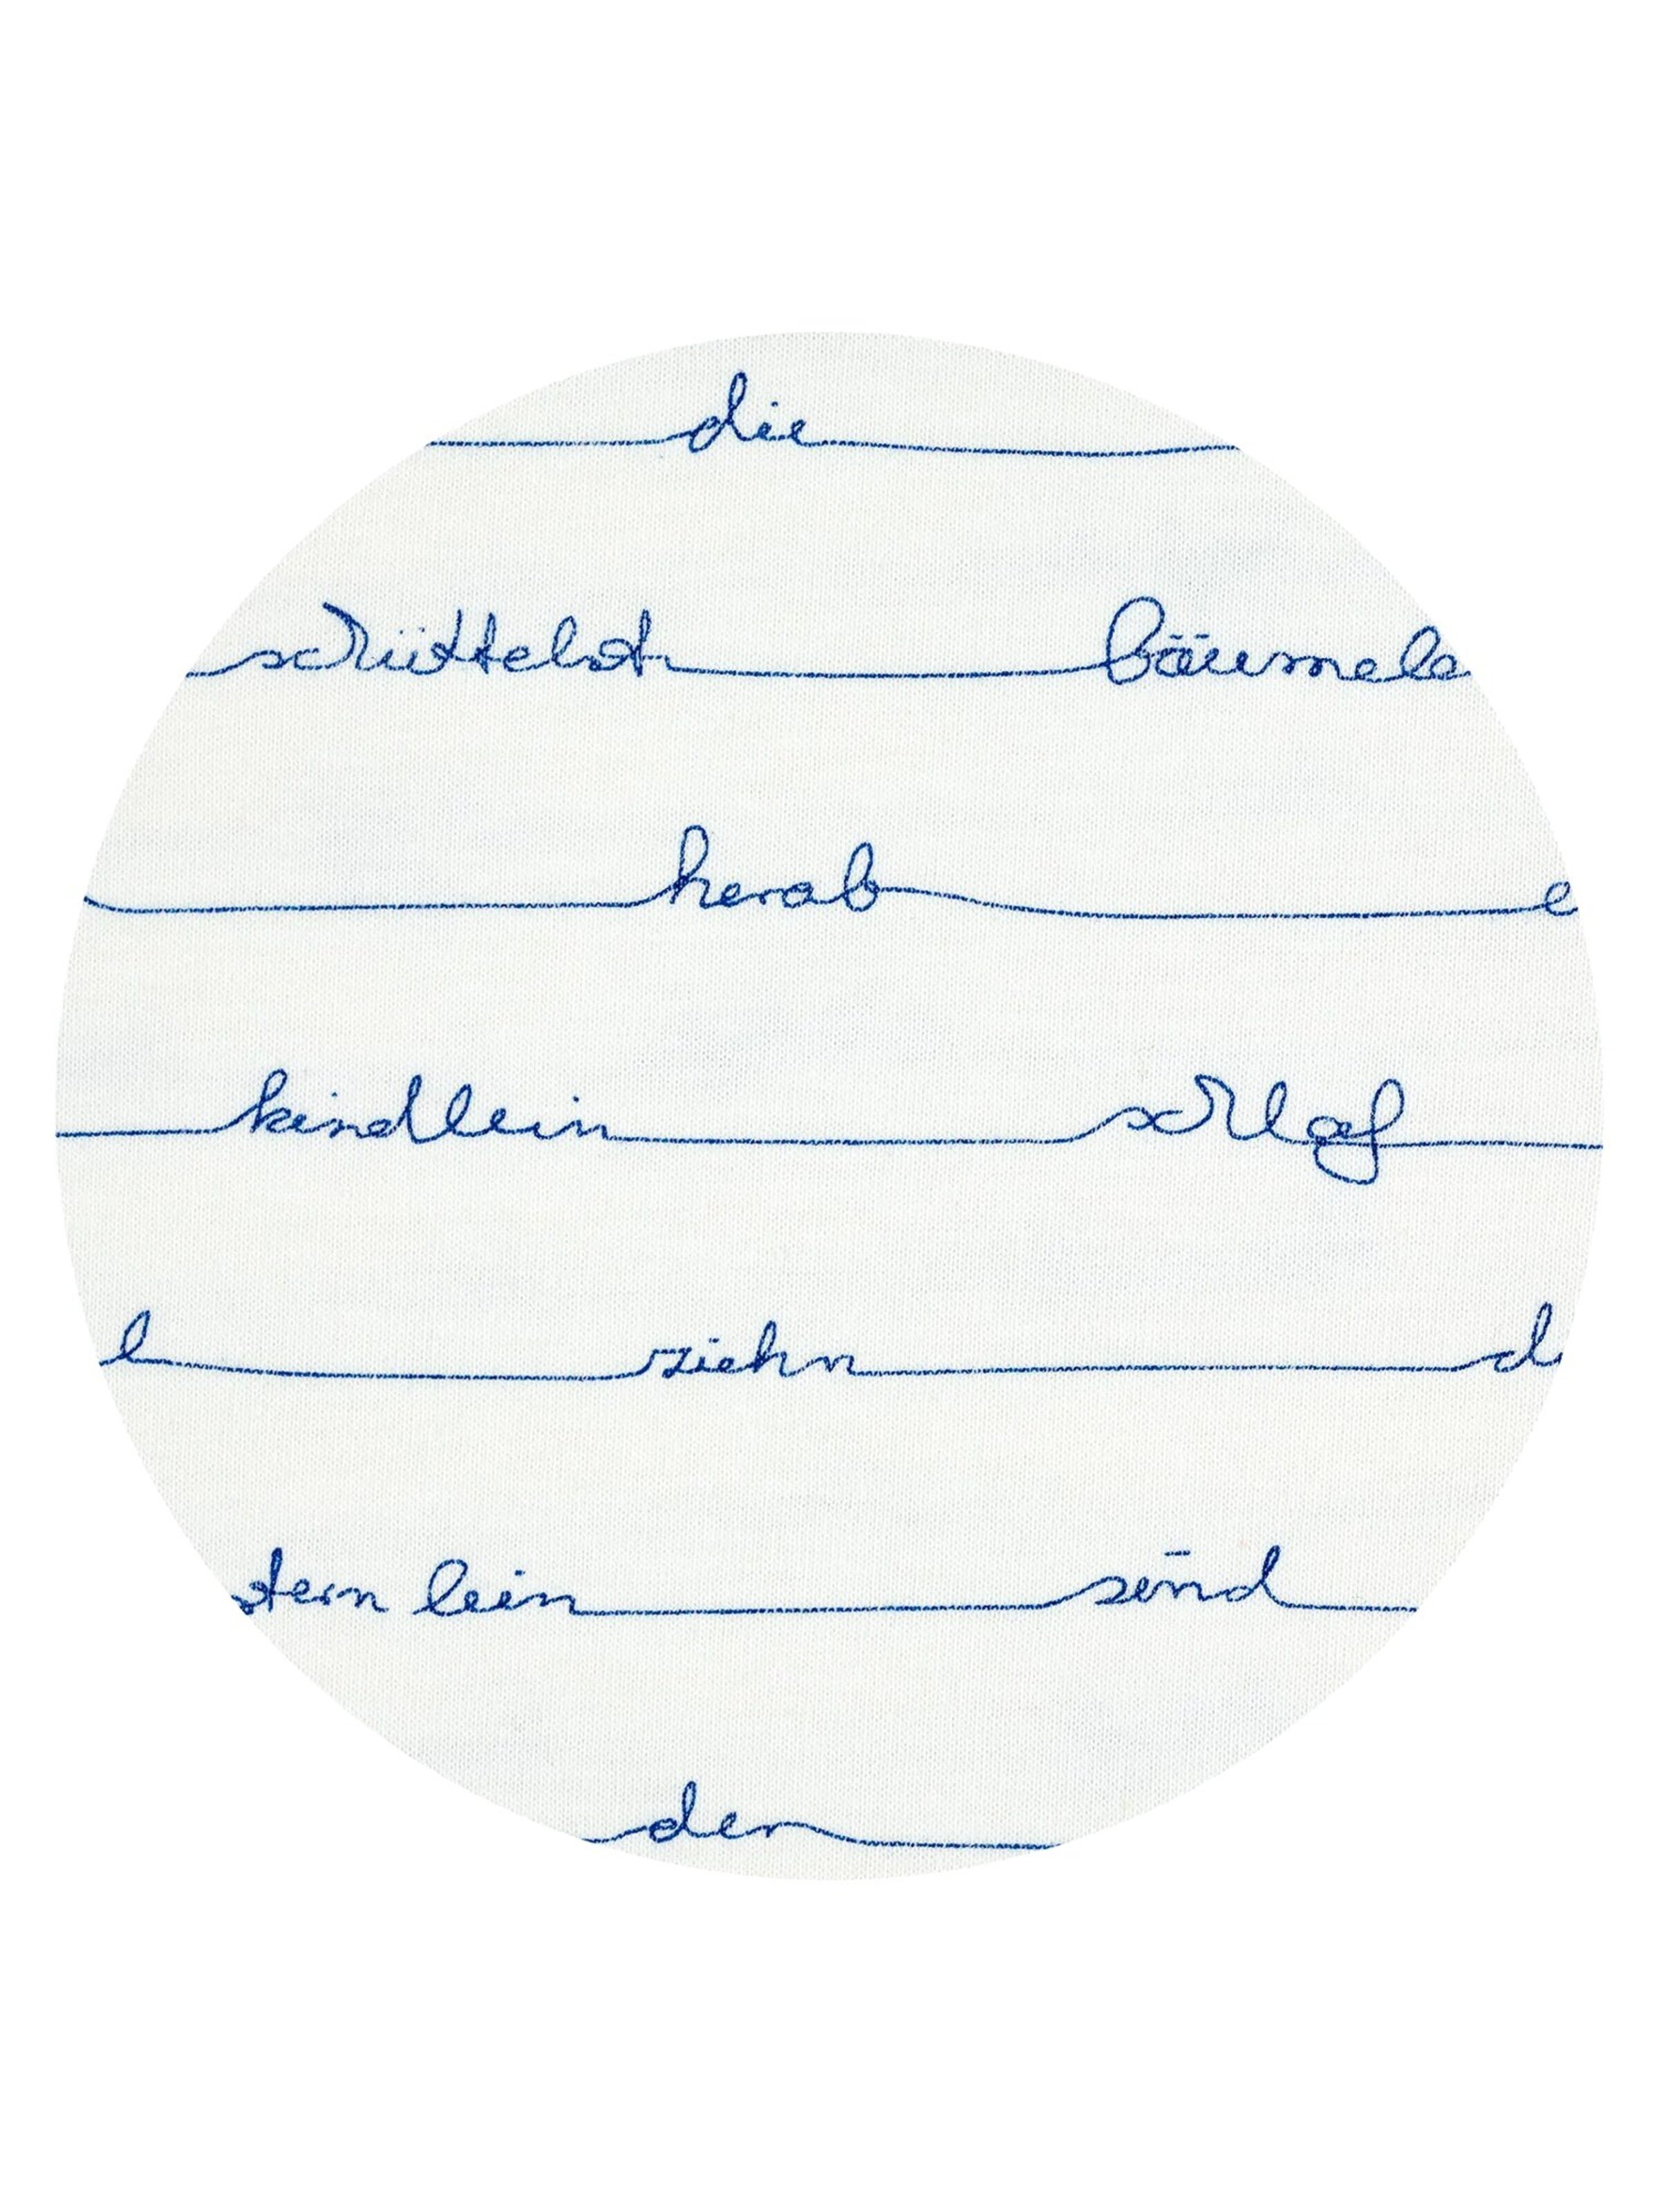 die
schüttelst bäumele
herab e
kindlein schlaf
l ziehn d
stern lein sind
den